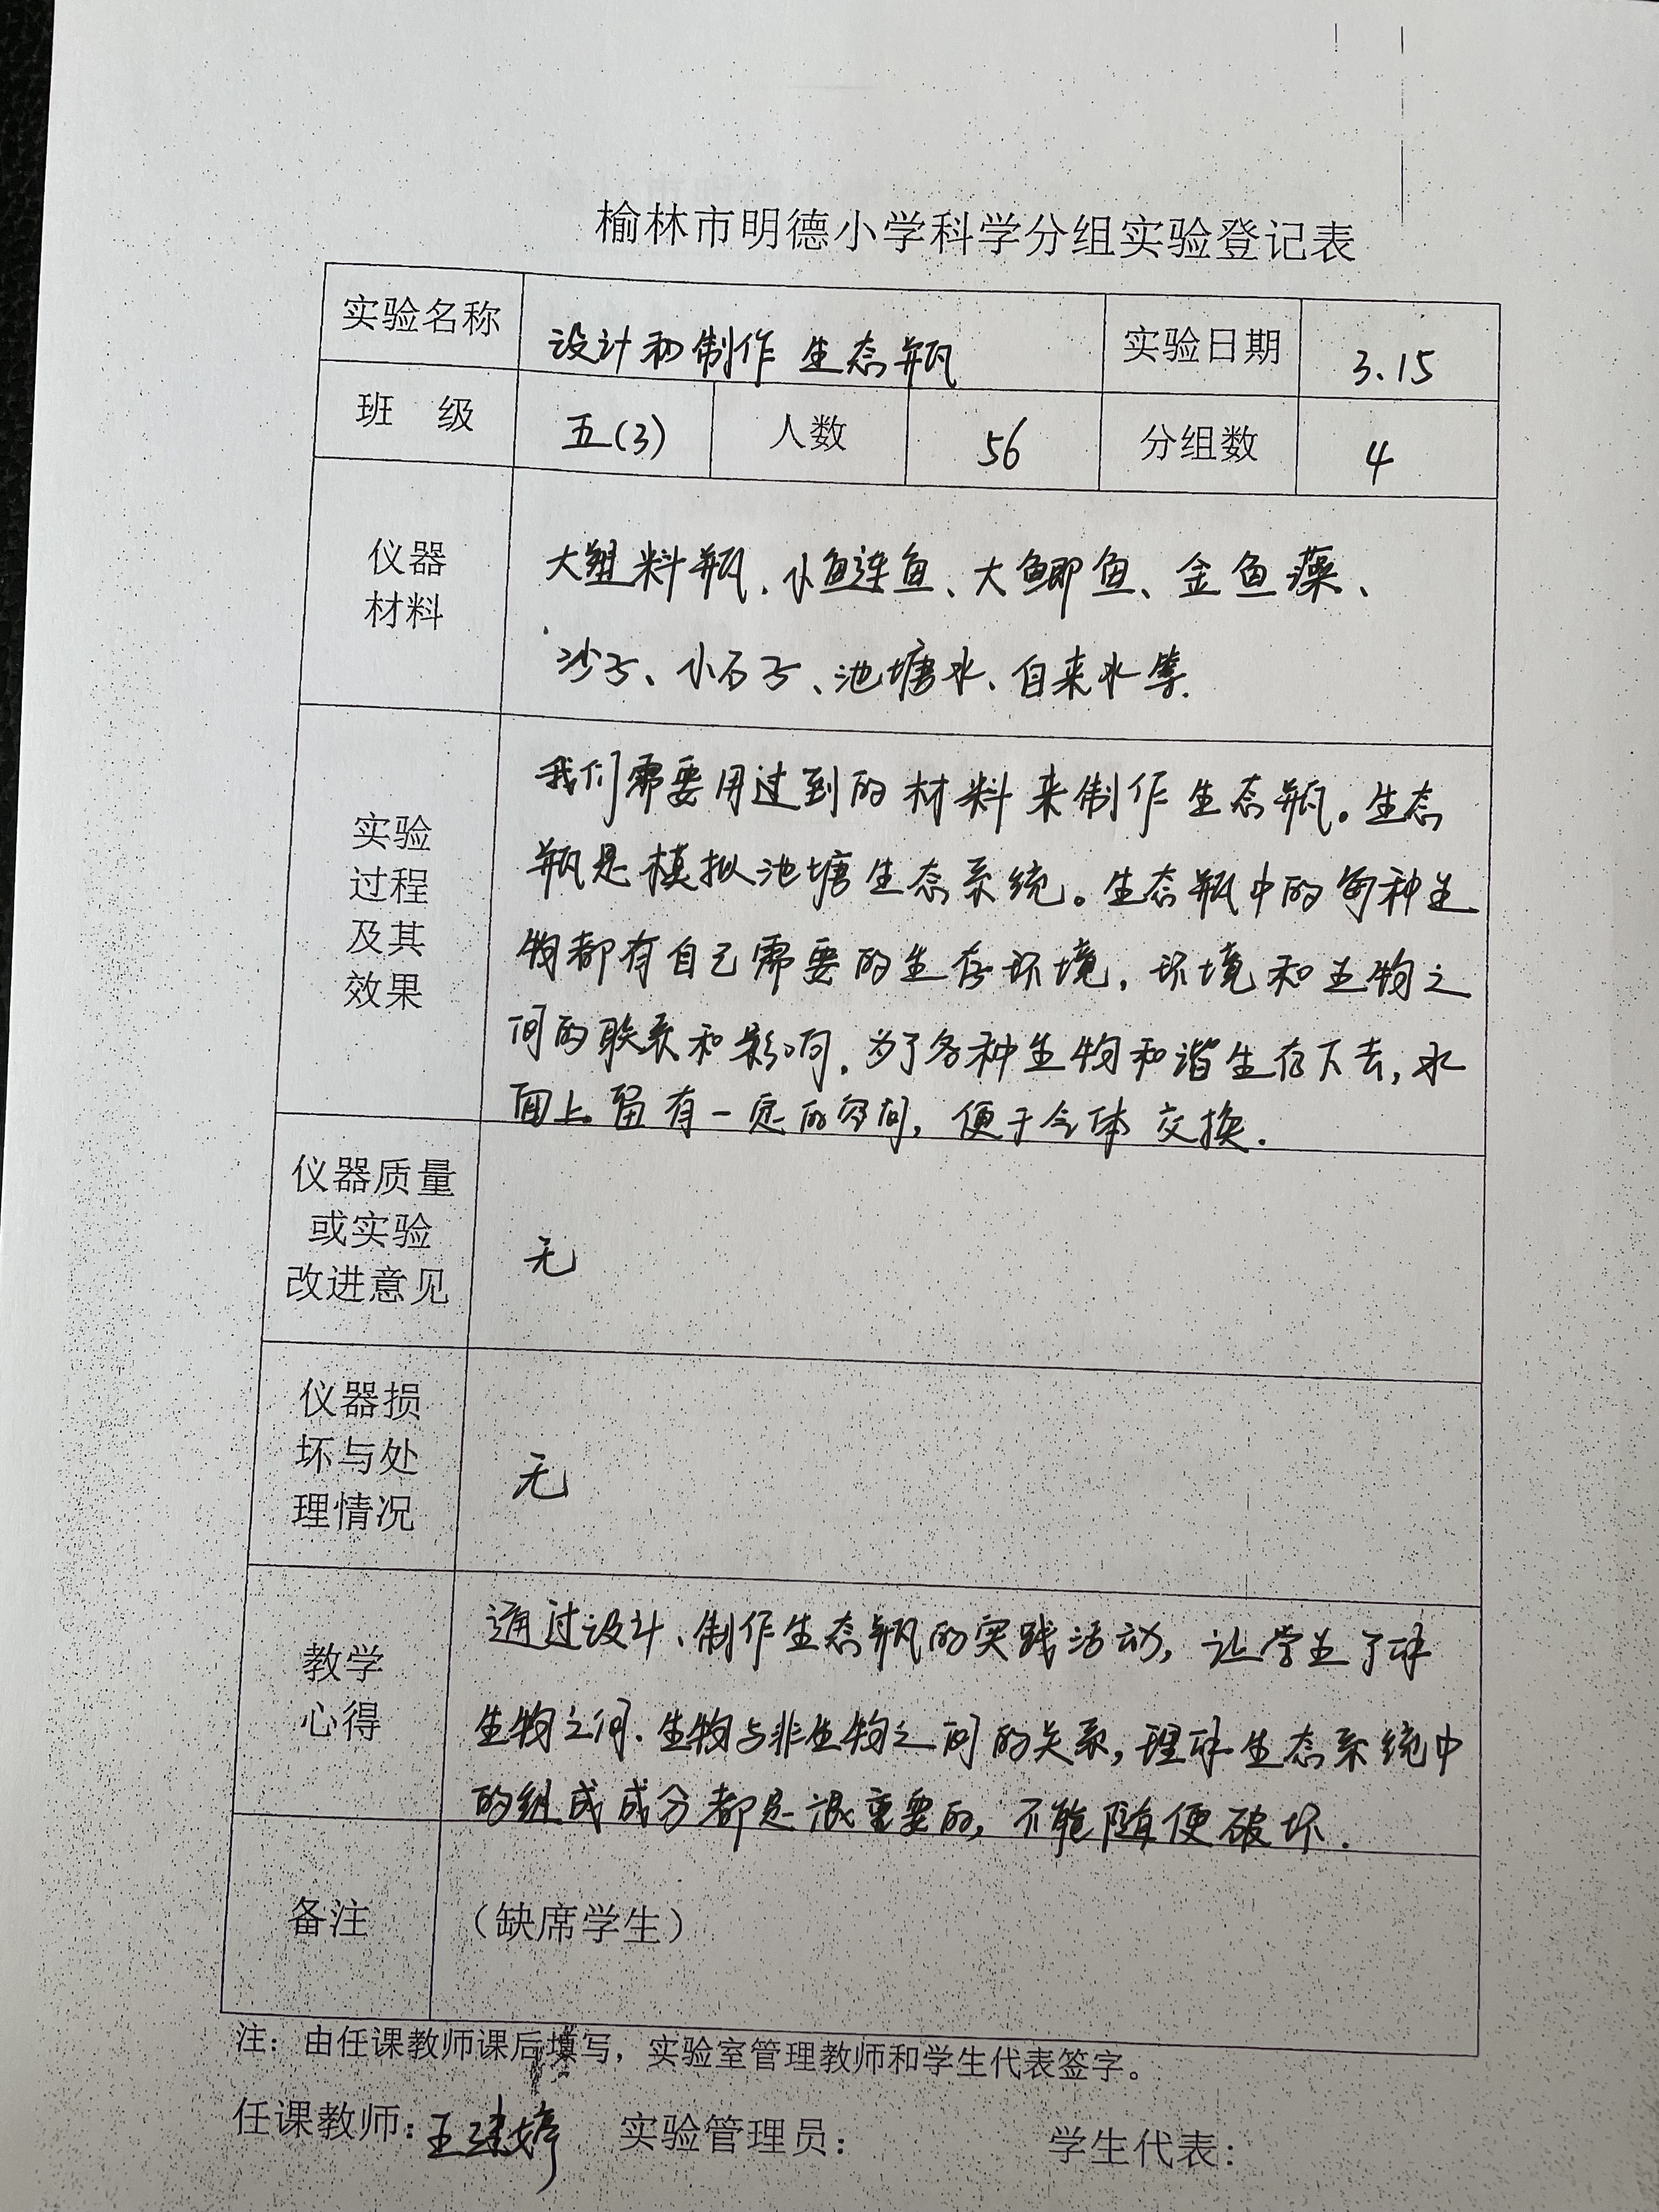 榆林市明德小学科学分组实验登记表
实验名称 设计和制作生态瓶 实验日期 3.15
班 级 五(3) 人数 56 分组数 4
仪器
材料
大塑料瓶、小鲢鱼、大鲫鱼、金鱼藻、
沙子、小石子、池塘水、自来水等.
实验
过程
及其
效果
我们需要用过到的材料来制作生态瓶。生态
瓶是模拟池塘生态系统。生态瓶中的每种生
物都有自己需要的生存环境,环境和生物之
间的联系和影响,为了各种生物和谐生存下去,水
面上留有一定的空间,便于气体交换.
仪器质量
或实验
改进意见
无
仪器损
坏与处
理情况
无
教学
心得
通过设计、制作生态瓶的实践活动,让学生了解
生物之间.生物与非生物之间的关系,理解生态系统中
的组成成分都是很重要的,不能随便破坏.
备注 (缺席学生)
注：由任课教师课后填写，实验室管理教师和学生代表签字。
任课教师：王 婷 实验管理员： 学生代表：